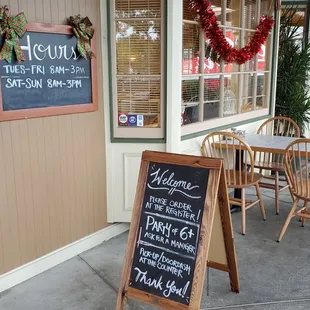 Hours
Tues-Fri 8am-3pm
Sat-Sun 8am-3pm
Welcome
Please order
at the register!
Party of 6+
Ask for a manager
Pick-up/Doordash
at the counter
Thank You!